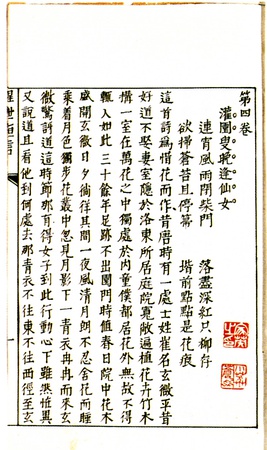 第四卷
灌園叟晚逢仙女
連宵風雨閉柴門 落盡深紅只柳存
欲掃蒼苔且停帚 堦前點點是花痕
這首詩爲惜花而作昔唐時有一處士姓崔名玄微平昔
好道不娶妻室隱於洛東所居庭院寬敞遍植花卉竹木
搆一室在萬花之中獨處於內童僕都居花外無故不得
輒入如此三十餘年足跡不出園門時值春日院中花木
盛開玄微日夕徜徉其間一夜風清月朗不忍舍花而睡
乘着月色獨步花叢中忽見月影下一青衣冉冉而來玄
微驚訝道這時節那有得女子到此行動心下雖然怪異
又說道且看他到何處去那青衣不往東不往西徑至玄
醒世恒言